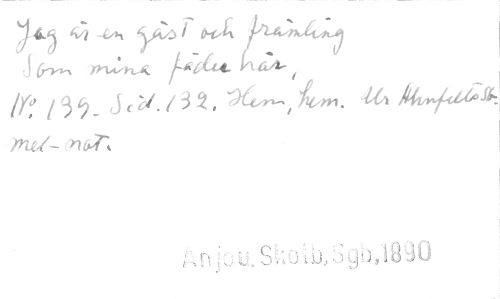 Jag är en gäst och främling
Som mina fäder här,
No. 139. Sid. 132. Hem, hem. Ur Ahnfelts Sb.
med not.
Anjou. Skolb, Sgb, 1890